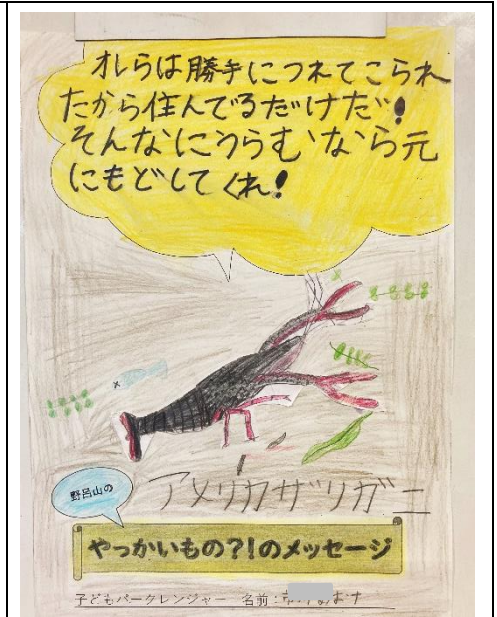 オレらは勝手につれてこられ
たから住んでるだけだ!
そんなにうらむなら元
にもどしてくれ!
野呂山の
アメリカザリガニ
やっかいもの?!のメッセージ
子どもパークレンジャー 名前: